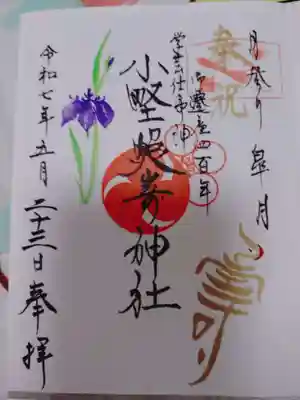 月参り 皐月
奉祝
寿
御遷座四百年
学芸仕事神
小野照崎神社
令和七年五月
二十三日奉拝